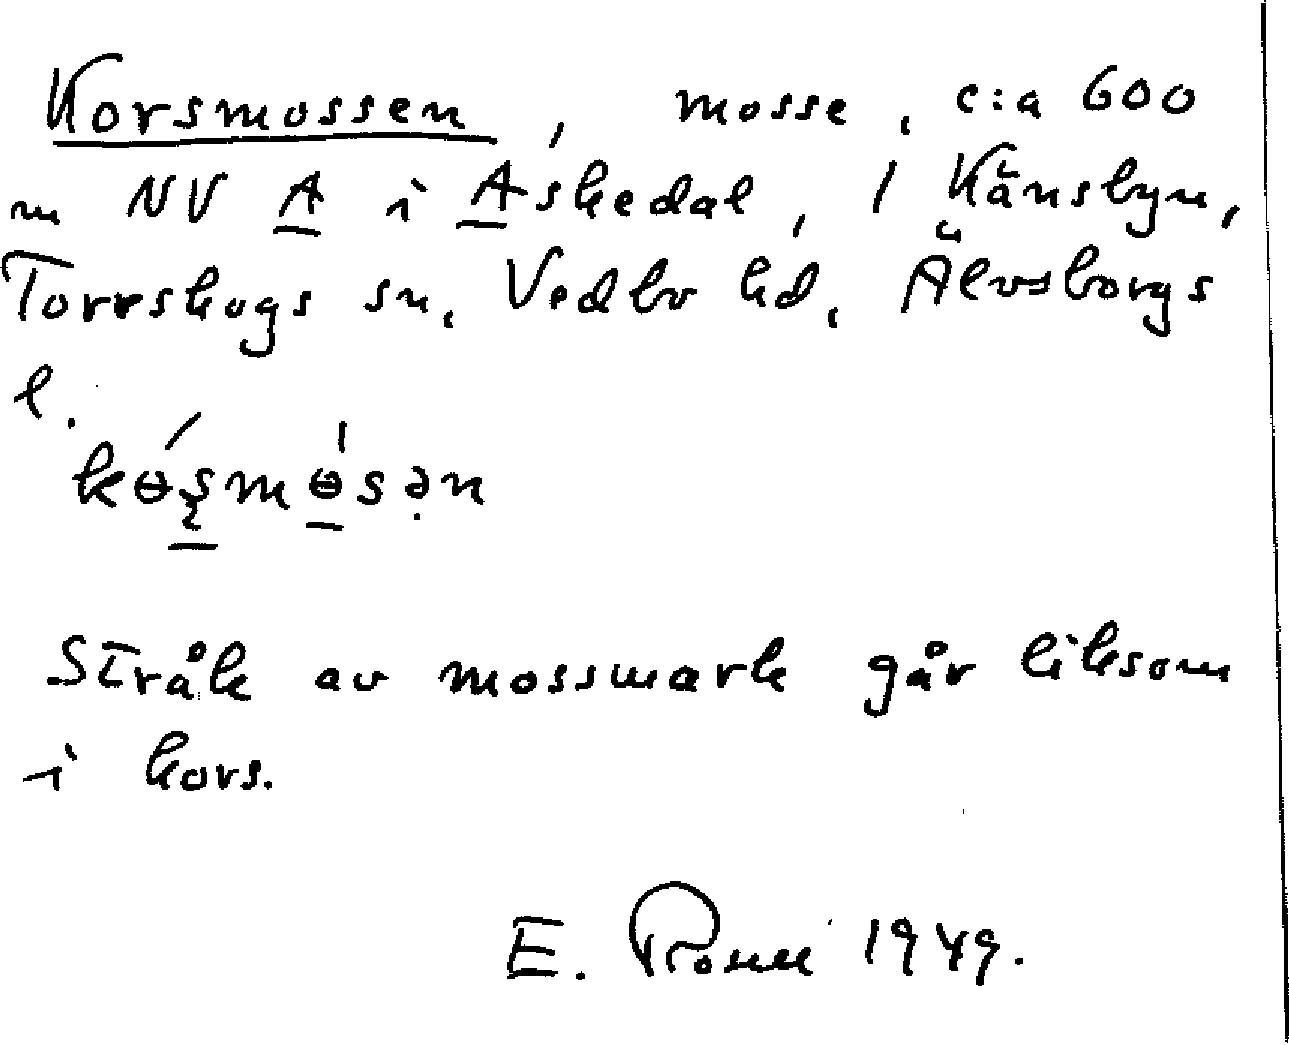 Korsmossen, mosse, c:a 600
m NV A i Askedal, 1 Känsbyn,
Torrskogs sn, Vedbo hd, Älvsborgs
l.
kɵ́șmɵ̀sən
Stråk av mossmark går liksom
i kors.
E. 1949.